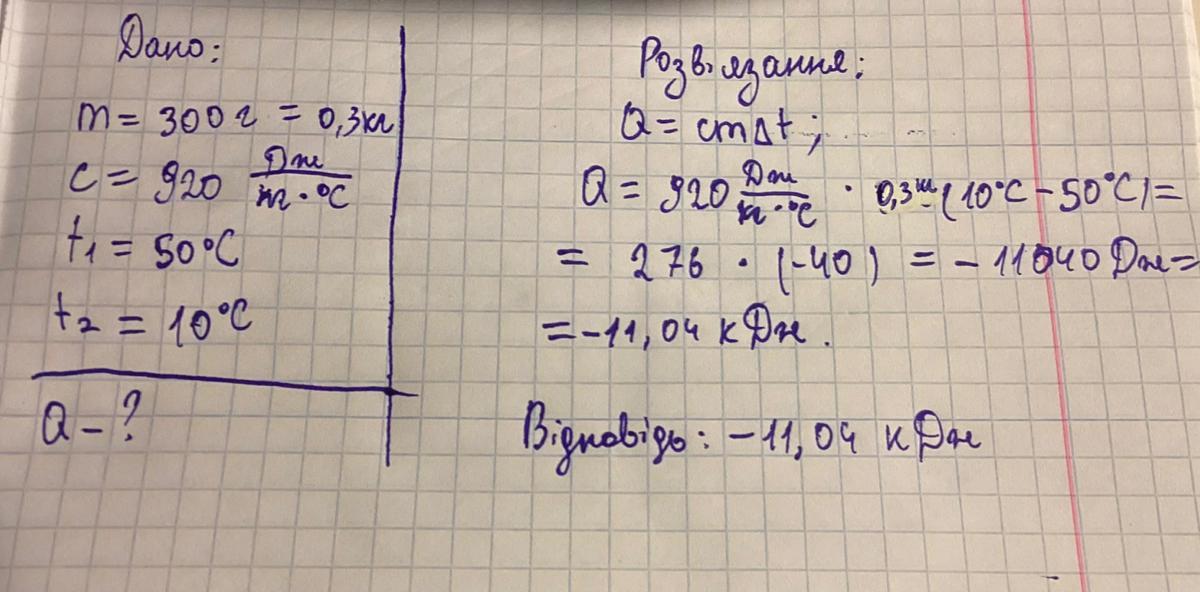 Дано:
m = 300 г = 0,3 кг
c = 920 Дж/кг·°C
t₁ = 50°C
t₂ = 10°C
Q – ?
Розв'язання:
Q = cmΔt;
Q = 920 Дж/кг·°C · 0,3 кг (10°C – 50°C) =
= 276 · (-40) = - 11040 Дж =
= -11,04 кДж.
Відповідь: -11,04 кДж